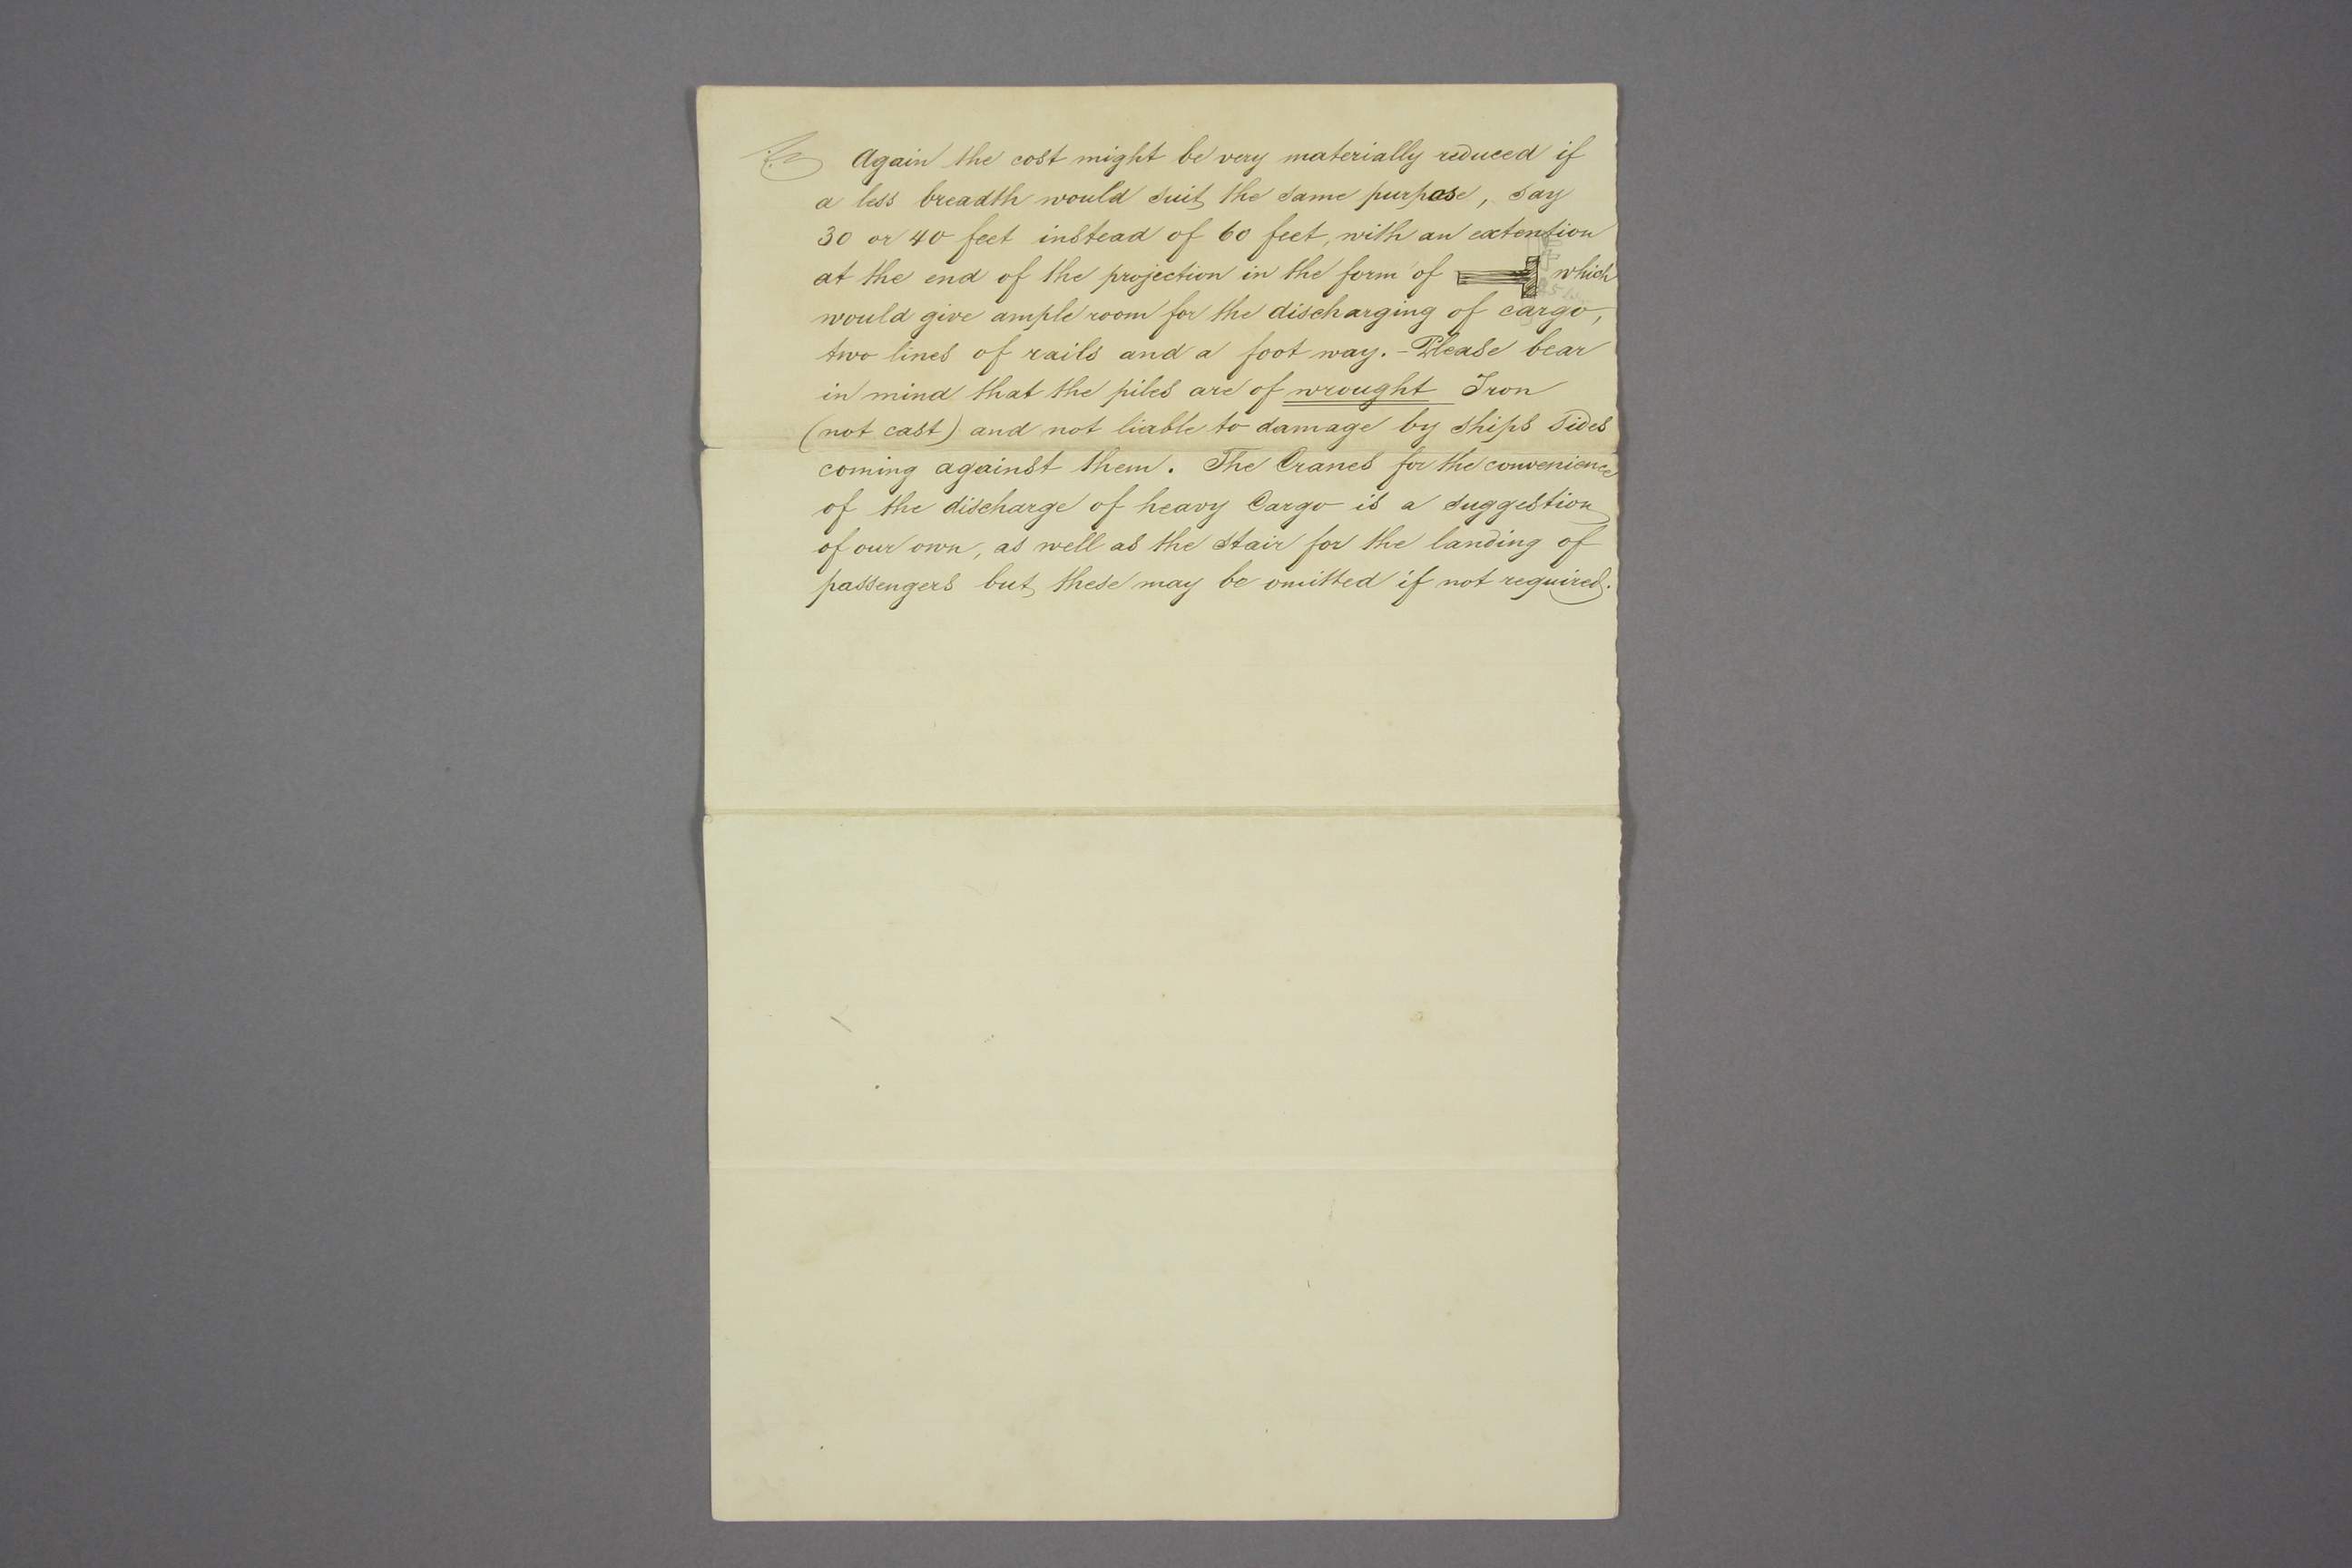 Again the cost might be very materially reduced if
a less breadth would suit the same purpose, say
30 or 40 feet instead of 60 feet, with an extention
at the end of the projection in the form of which
would give ample room for the discharging of cargo,
two lines of rails and a foot way. - Please bear
in mind that the piles are of wrought Iron
(not cast) and not liable to damage by ships sides
coming against them. The Cranes for the convenience
of the discharge of heavy Cargo is a suggestion
of our own, as well as the stair for the landing of
passengers but these may be omitted if not required.